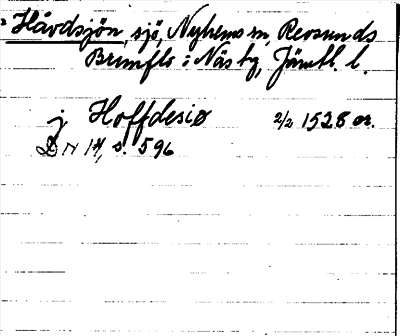 Håvdsjön, sjö, Nyhems sn, Revsunds
Brunflo o Näs tg, Jämtl. l.
j Hoffdesiø 2/2 1528 or.
DN 14, s. 596